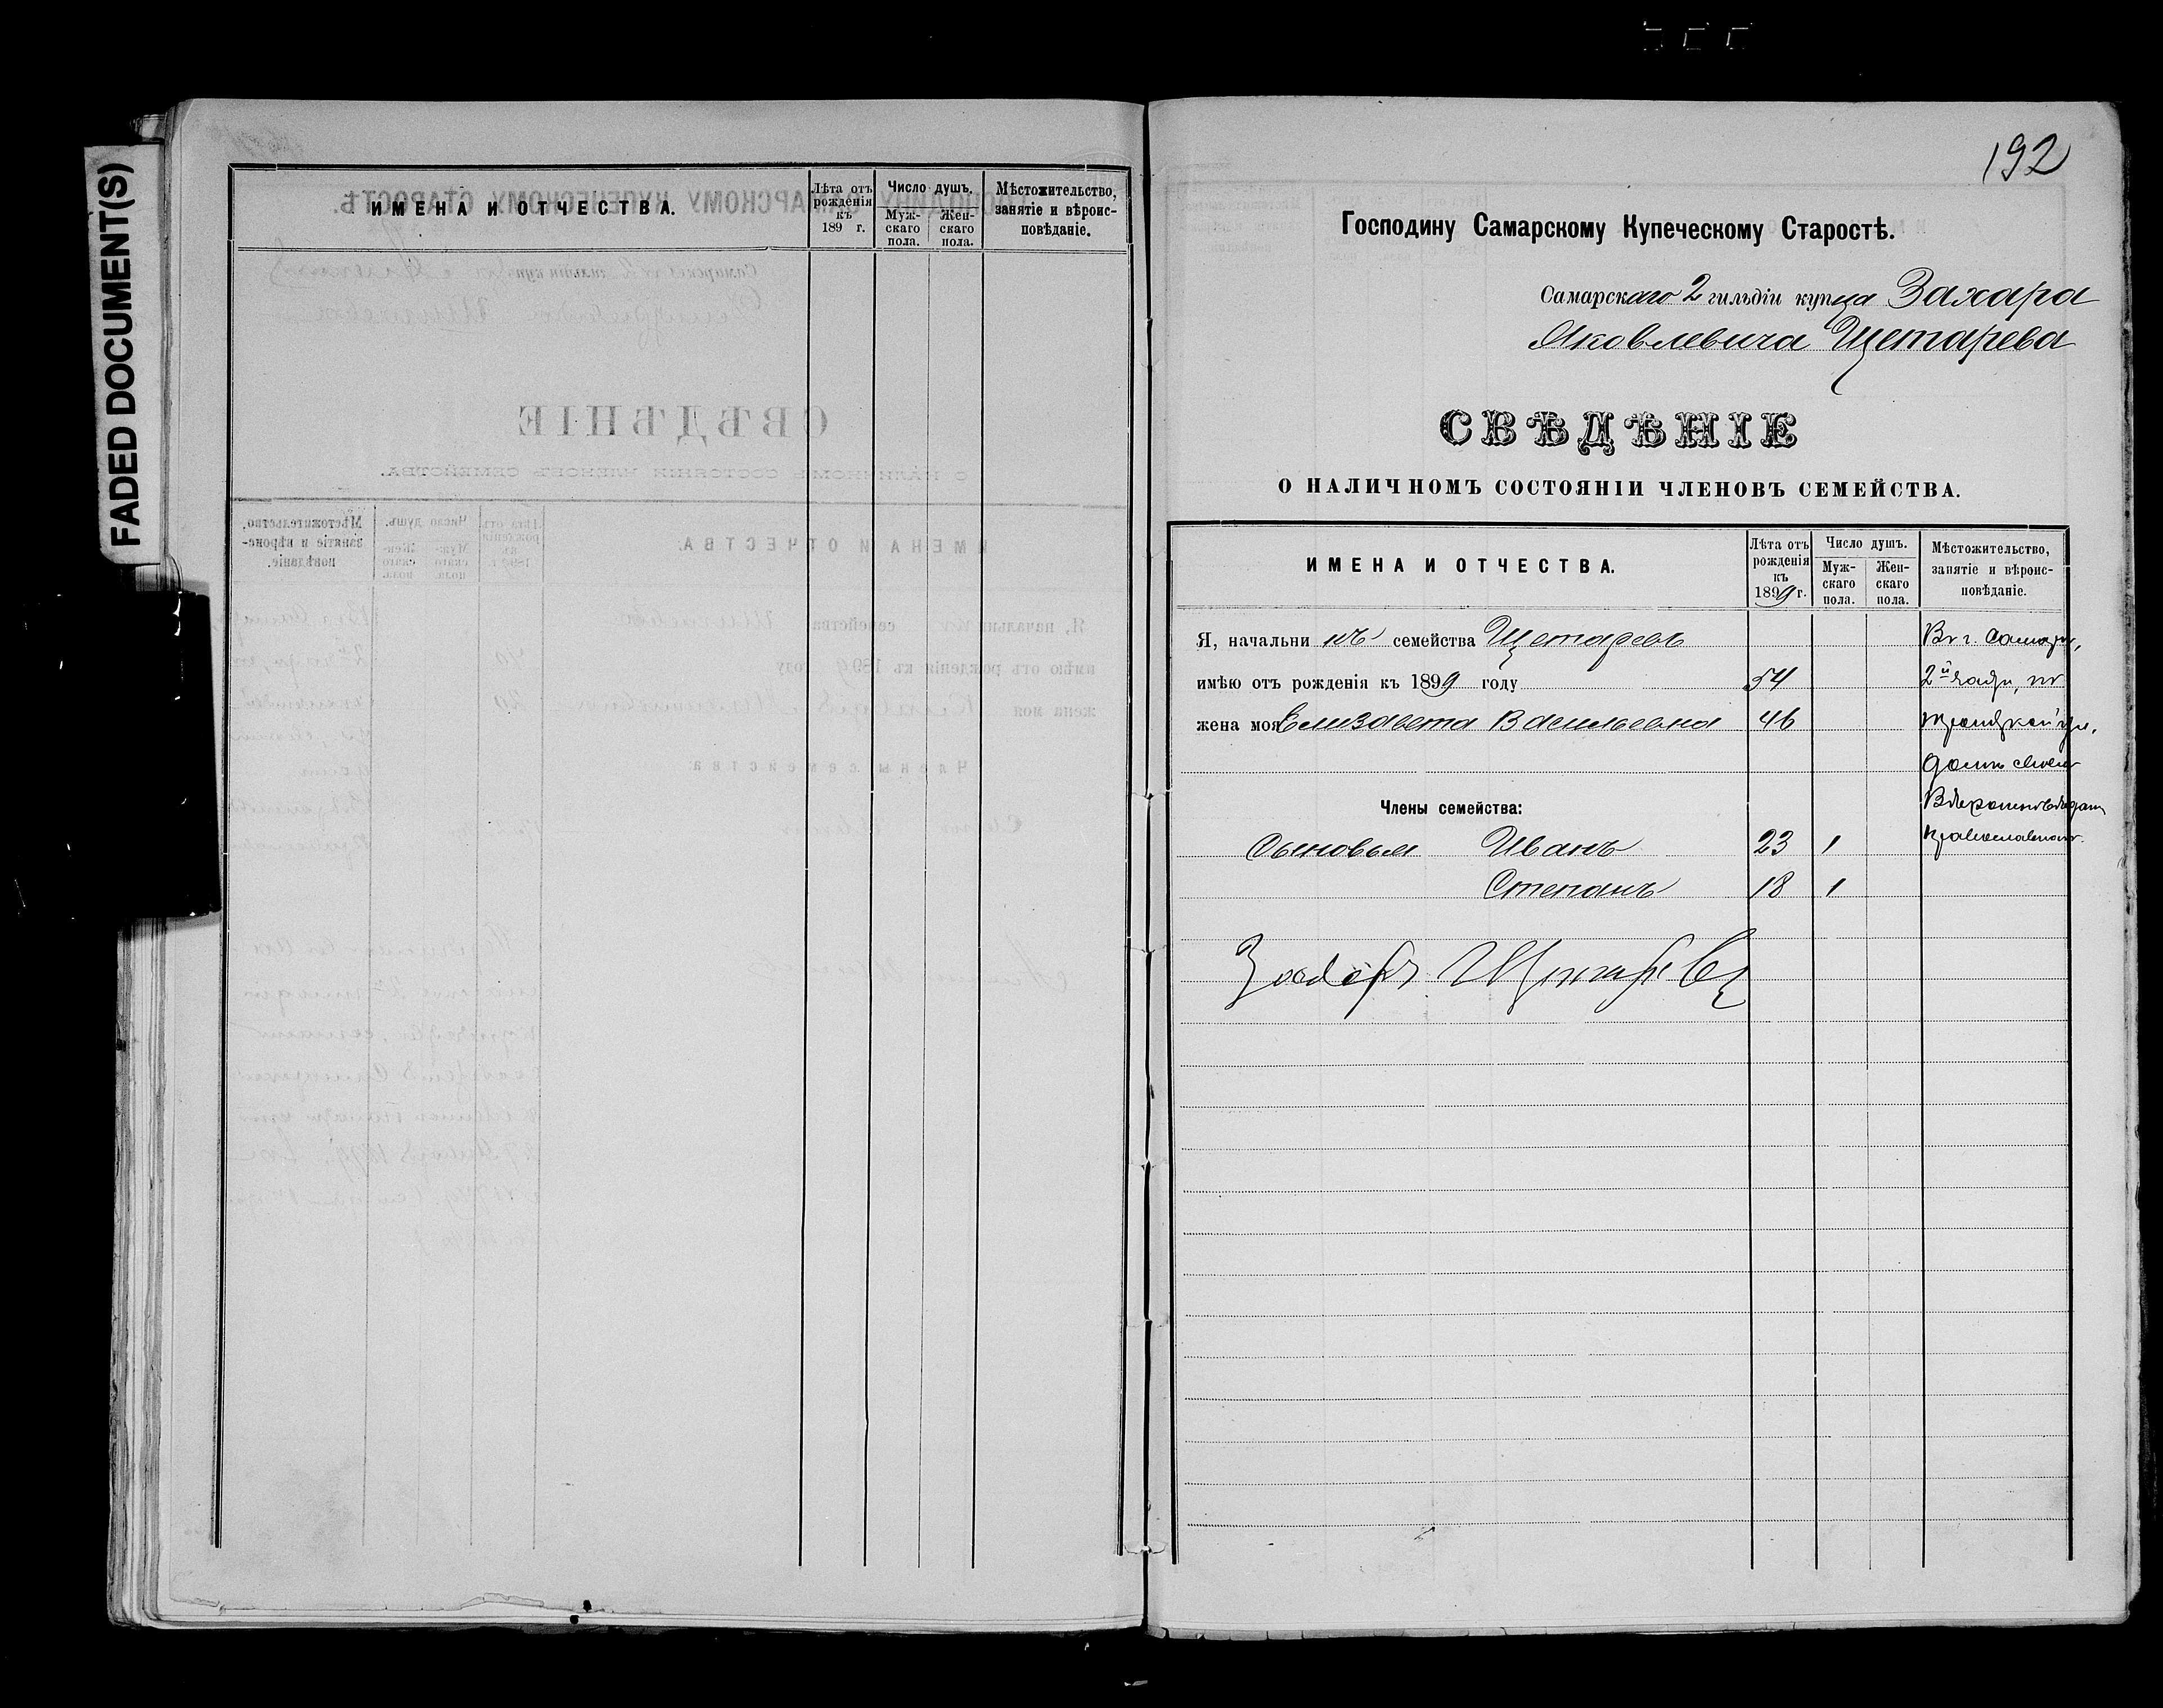 FADED DOCUMENT(S)
ИМЕНА И ОТЧЕСТВА.
Лѣта отъ рожденія къ 189 г.
Число душъ.
Мужскаго пола.
Женскаго пола.
Мѣстожительство, занятіе и вѣроисповѣданіе.
192
Господину Самарскому Купеческому Старостѣ.
Самарскаго 2 гильдіи купца Захара
Яковлевича Щетарева
СВѢДѢНІЕ
О НАЛИЧНОМЪ СОСТОЯНІИ ЧЛЕНОВЪ СЕМЕЙСТВА.
ИМЕНА И ОТЧЕСТВА.
Лѣта отъ рожденія къ 1899 г.
Число душъ.
Мужскаго пола.
Женскаго пола.
Мѣстожительство, занятіе и вѣроисповѣданіе.
Я, начальникъ семейства Щетаревъ Въ г. Самарѣ,
имѣю отъ рожденія къ 1899 году 54 2й части, по
жена моя Елизавета Васильевна 46 Троицкой ул.
домъ свой
Члены семейства: Вѣроисповѣдан
Сыновья Иванъ 23 1 православнаго.
Степанъ 18 1
Захаръ Щетаревъ